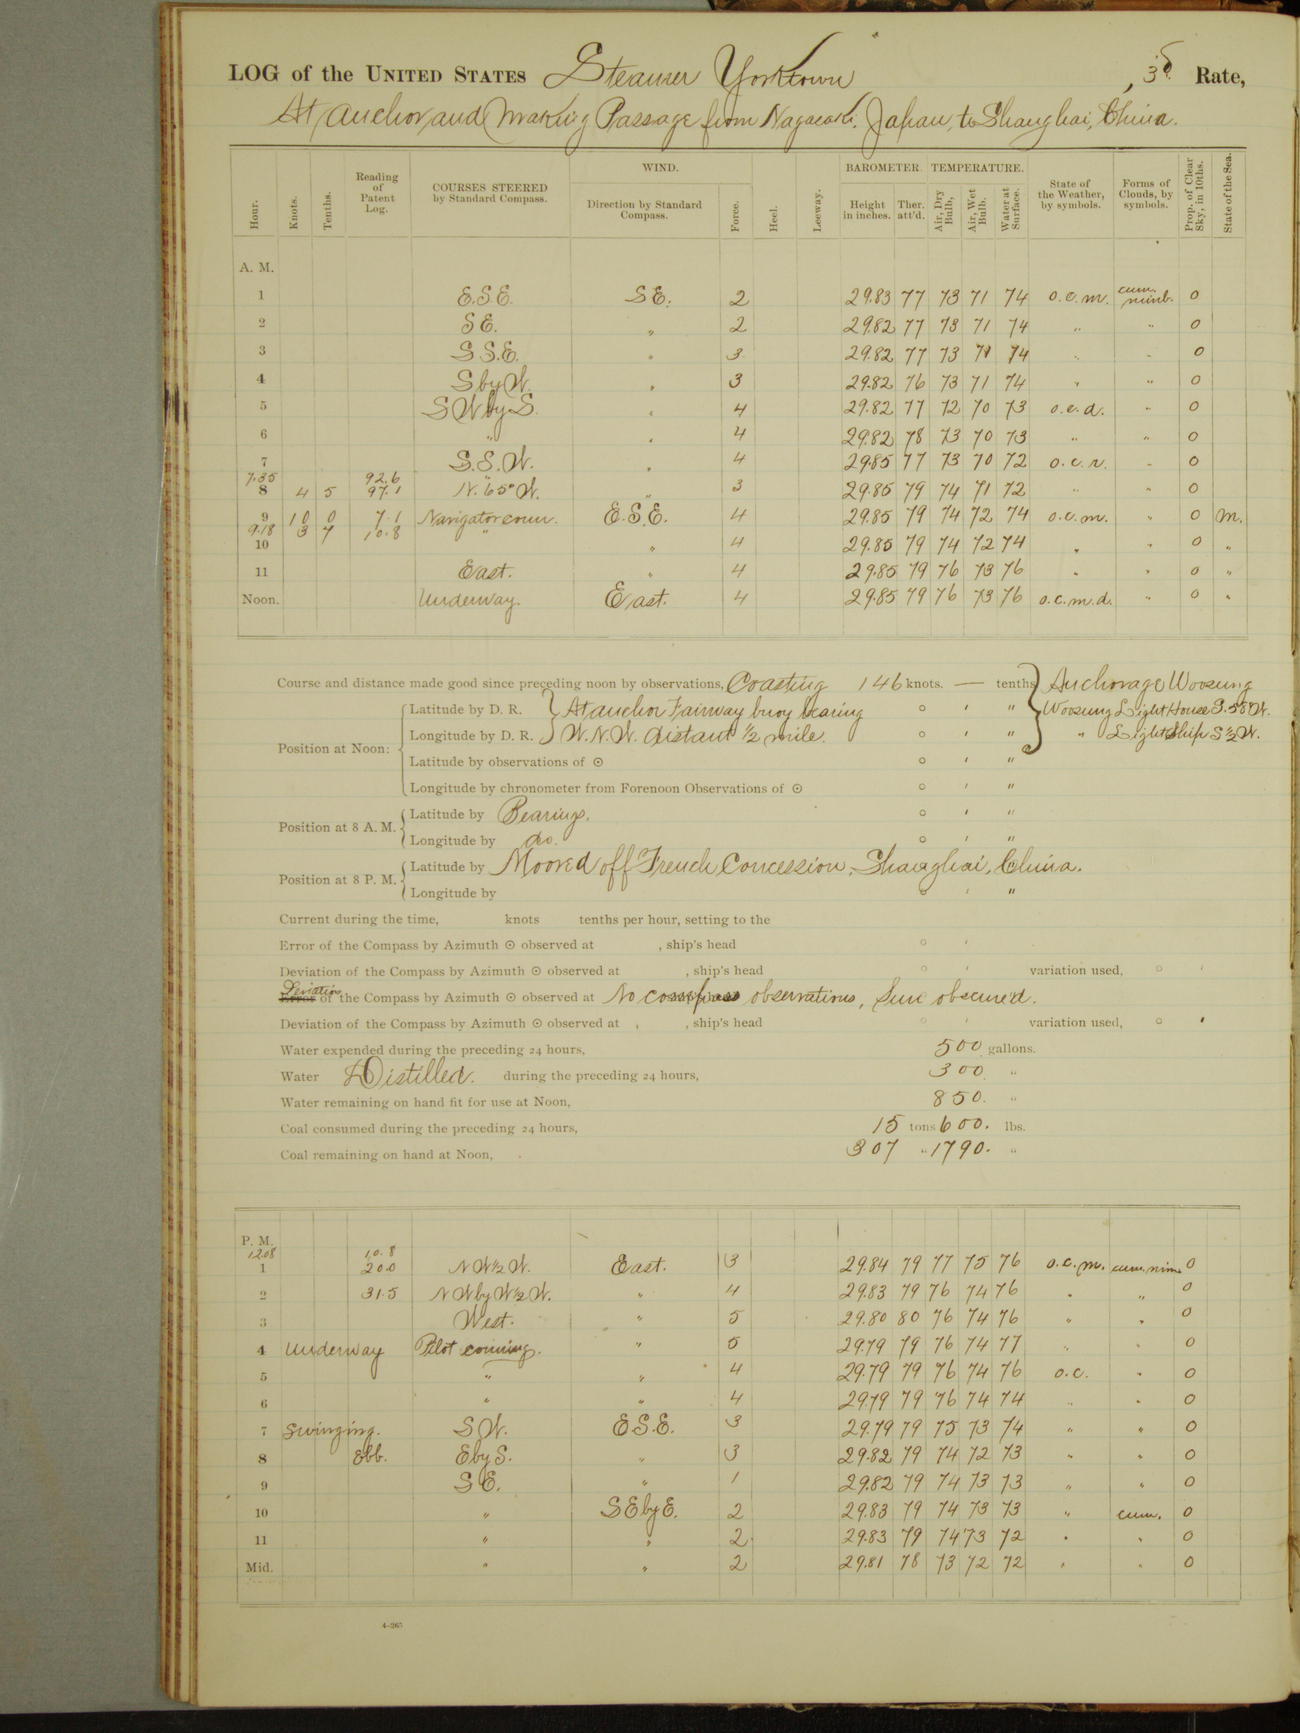 LOG of the UNITED STATES Steamer Yorktown, 3d Rate,
At anchor, and Making Passage from Nagasaki, Japan, to Shanghai, China.
Hour. Knots. Tenths. Reading of Patent Log. COURSES STEERED by Standard Compass. WIND. Direction by Standard Compass. Force. Heel. Leeway. BAROMETER. Height in inches. Ther. att'd. TEMPERATURE. Air, Dry Bulb, Air, Wet Bulb. Water at Surface. State of the Weather, by symbols. Forms of Clouds, by symbols. Prop. of Clear Sky, in 10ths. State of the Sea.
A. M.
1 E.S.E. S E. 2 29.83 77 73 71 74 o.c.m. cum. nimb. 0
2 S E. " 2 29.82 77 73 71 74 " " 0
3 S.S.E. " 3 29.82 77 73 71 74 " " 0
4 S by W. " 3 29.82 76 73 71 74 " " 0
5 S W by S. " 4 29.82 77 72 70 73 o.c.d. " 0
6 " " 4 29.82 78 73 70 73 " " 0
7 S.S.W. " 4 29.85 77 73 70 72 o.c.r. " 0
7.35 92.6
8 4 5 97.1 N. 65° W. " 3 29.85 79 74 71 72 " " 0
9 10 0 7.1 Navigator conn. E.S.E. 4 29.85 79 74 72 74 o.c.m. " 0 M.
9.18 3 7 10.8 "
10 " 4 29.85 79 74 72 74 " " 0 "
11 East. " 4 29.85 79 76 73 76 " " 0 "
Noon. Underway. East. 4 29.85 79 76 73 76 o.c.m.d. " 0 "
Course and distance made good since preceding noon by observations, Coasting 146 knots. — tenths Anchorage Woosung
Latitude by D. R. At anchor Fairway buoy bearing ° ' " Woosung Light House S. 58° W.
Position at Noon: Longitude by D. R. W.N.W. distant 1/2 mile. ° ' " " Light Ship S 1/2 W.
Latitude by observations of ☉ ° ' "
Longitude by chronometer from Forenoon Observations of ☉ ° ' "
Position at 8 A. M. Latitude by Bearings. ° ' "
Longitude by do. ° ' "
Position at 8 P. M. Latitude by Moored off French Concession, Shanghai, China.
Longitude by ° ' "
Current during the time, knots tenths per hour, setting to the
Error of the Compass by Azimuth ☉ observed at , ship's head ° '
Deviation of the Compass by Azimuth ☉ observed at , ship's head ° ' variation used, ° '
Deviation
Error of the Compass by Azimuth ☉ observed at No compass observations, Sun obscured.
Deviation of the Compass by Azimuth ☉ observed at , ship's head ° ' variation used, ° '
Water expended during the preceding 24 hours, 500 gallons.
Water Distilled. during the preceding 24 hours, 300 "
Water remaining on hand fit for use at Noon, 850. "
Coal consumed during the preceding 24 hours, 15 tons 600. lbs.
Coal remaining on hand at Noon, 307 " 1790. "
P. M.
12.08 10.8
1 20.0 N W 1/2 W. East. 3 29.84 79 77 75 76 o.c.m. cum. nim. 0
2 31.5 N W by W 1/2 W. " 4 29.83 79 76 74 76 " " 0
3 West. " 5 29.80 80 76 74 76 " " 0
4 Underway Pilot conning. " 5 29.79 79 76 74 77 " " 0
5 " " 4 29.79 79 76 74 76 o.c. " 0
6 " " 4 29.79 79 76 74 74 " " 0
7 Swinging. S W. E.S.E. 3 29.79 79 75 73 74 " " 0
8 Ebb. E by S. " 3 29.82 79 74 72 73 " " 0
9 S E. " 1 29.82 79 74 73 73 " " 0
10 " S E by E. 2 29.83 79 74 73 73 " cum. 0
11 " " 2 29.83 79 74 73 72 " " 0
Mid. " " 2 29.81 78 73 72 72 " " 0
4-265